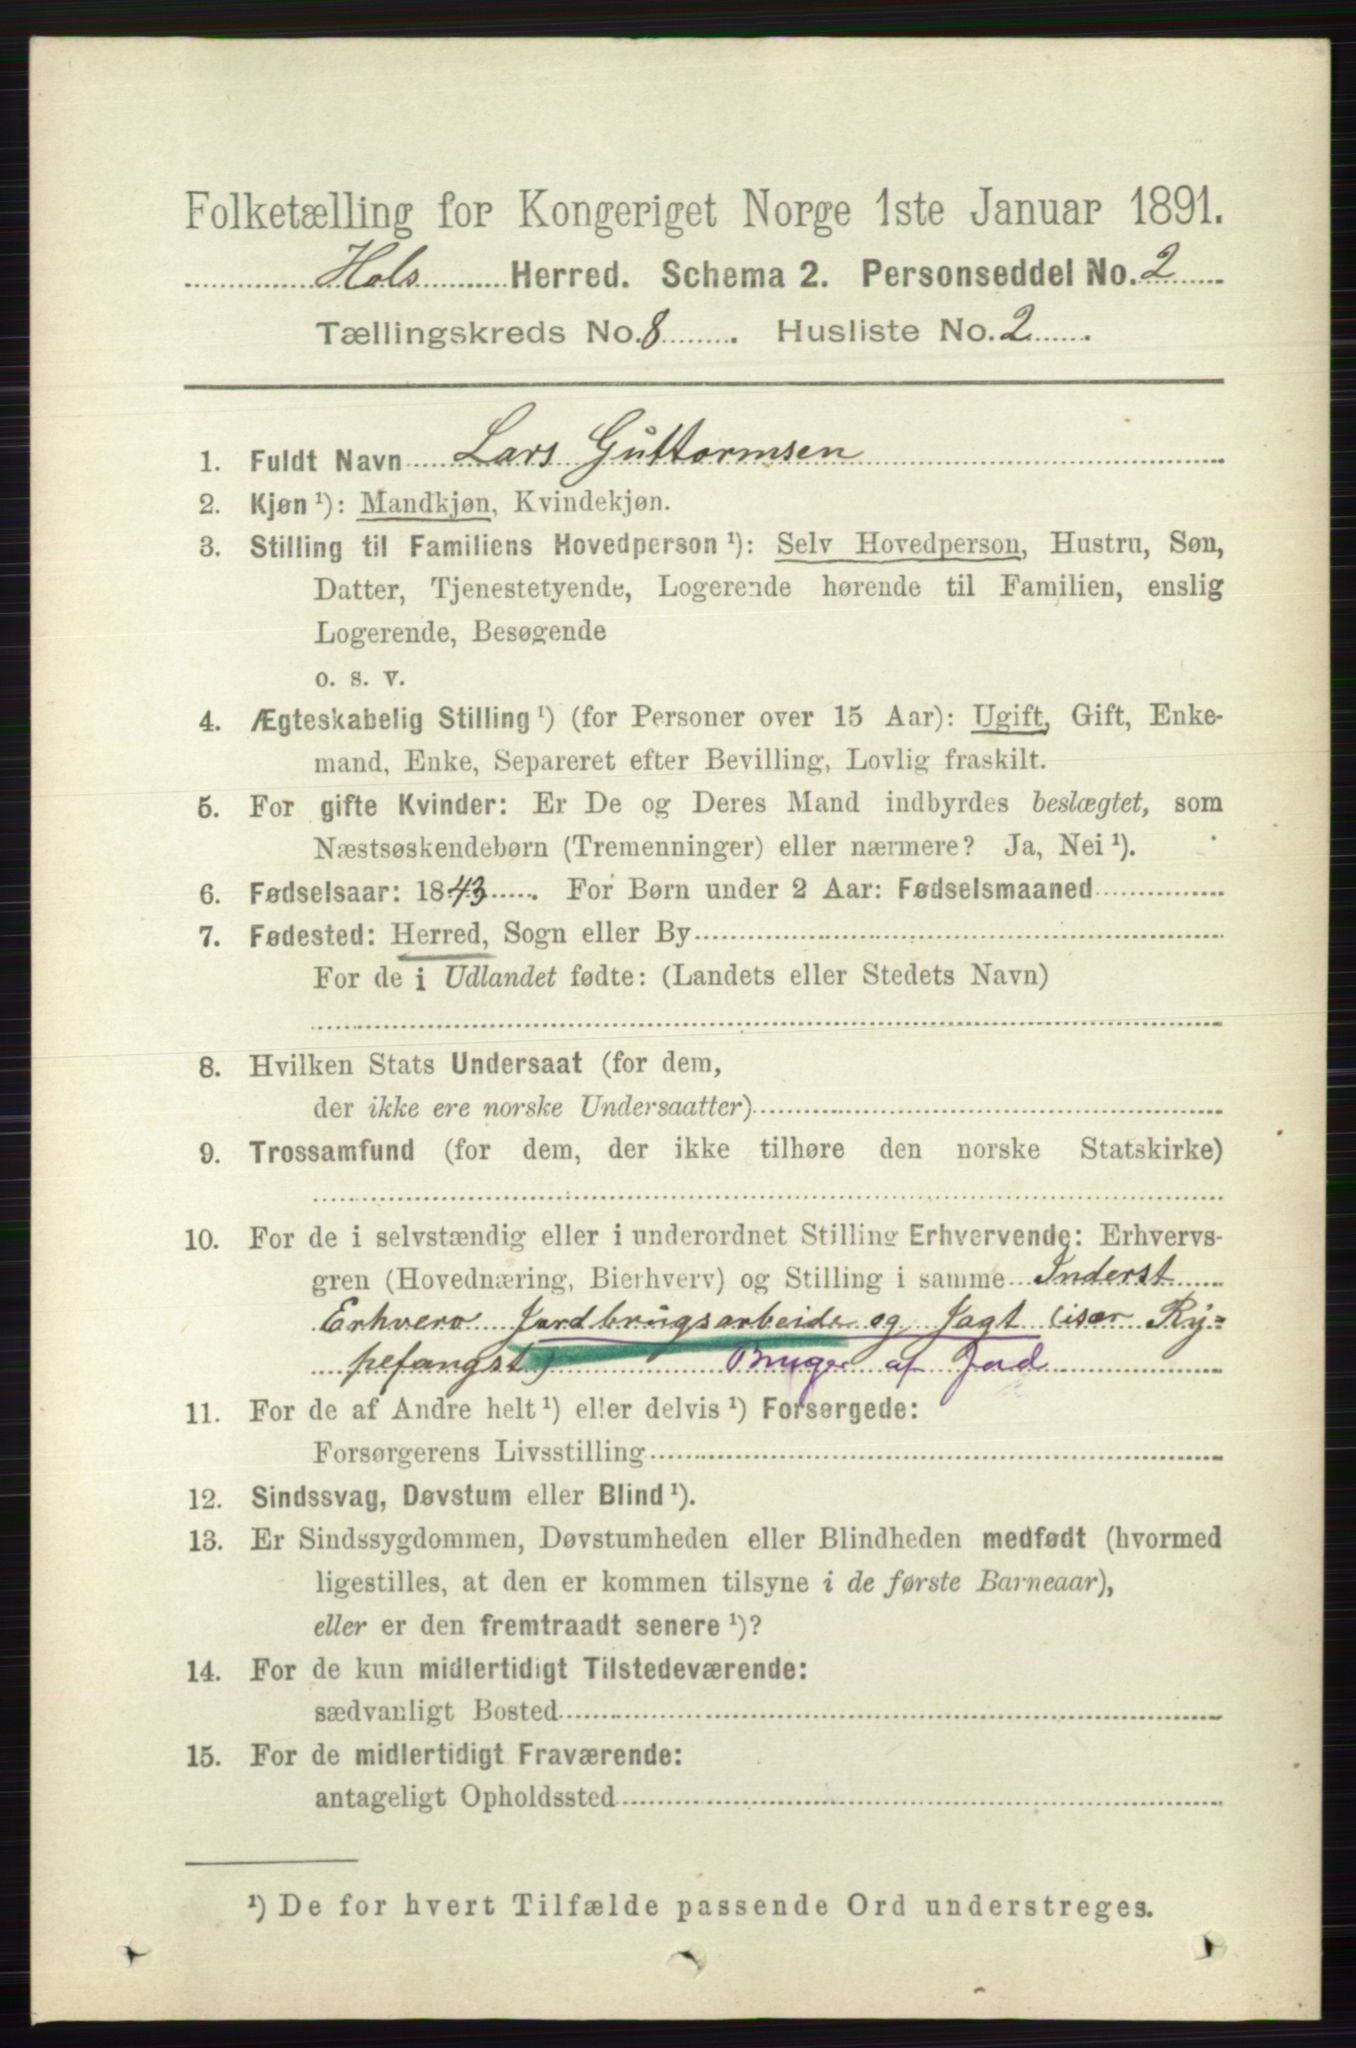 Folketælling for Kongeriget Norge 1ste Januar 1891.
Hols Herred. Schema 2. Personseddel No. 2
Tællingskreds No. 8. Husliste No. 2.
1. Fuldt Navn Lars Guttormsen
2. Kjøn ¹): Mandkjøn, Kvindekjøn.
3. Stilling til Familiens Hovedperson ¹): Selv Hovedperson, Hustru, Søn,
Datter, Tjenestetyende, Logerende hørende til Familien, enslig
Logerende, Besøgende
o. s. v.
4. Ægteskabelig Stilling ¹) (for Personer over 15 Aar): Ugift, Gift, Enke-
mand, Enke, Separeret efter Bevilling, Lovlig fraskilt.
5. For gifte Kvinder: Er De og Deres Mand indbyrdes beslægtet, som
Næstsøskendebørn (Tremenninger) eller nærmere? Ja, Nei ¹).
6. Fødselsaar: 1843. For Børn under 2 Aar: Fødselsmaaned
7. Fødested: Herred, Sogn eller By
For de i Udlandet fødte: (Landets eller Stedets Navn)
8. Hvilken Stats Undersaat (for dem,
der ikke ere norske Undersaatter)
9. Trossamfund (for dem, der ikke tilhøre den norske Statskirke)
10. For de i selvstændig eller i underordnet Stilling Erhvervende: Erhvervs-
gren (Hovednæring, Bierhverv) og Stilling i samme Inderst
Erhverv Jordbrugsarbeide og Jagt (især Ry-
pefangst) Bruger af Jord
11. For de af Andre helt ¹) eller delvis ¹) Forsørgede:
Forsørgerens Livsstilling
12. Sindssvag, Døvstum eller Blind ¹).
13. Er Sindssygdommen, Døvstumheden eller Blindheden medfødt (hvormed
ligestilles, at den er kommen tilsyne i de første Barneaar),
eller er den fremtraadt senere ¹)?
14. For de kun midlertidigt Tilstedeværende:
sædvanligt Bosted
15. For de midlertidigt Fraværende:
antageligt Opholdssted
¹) De for hvert Tilfælde passende Ord understreges.